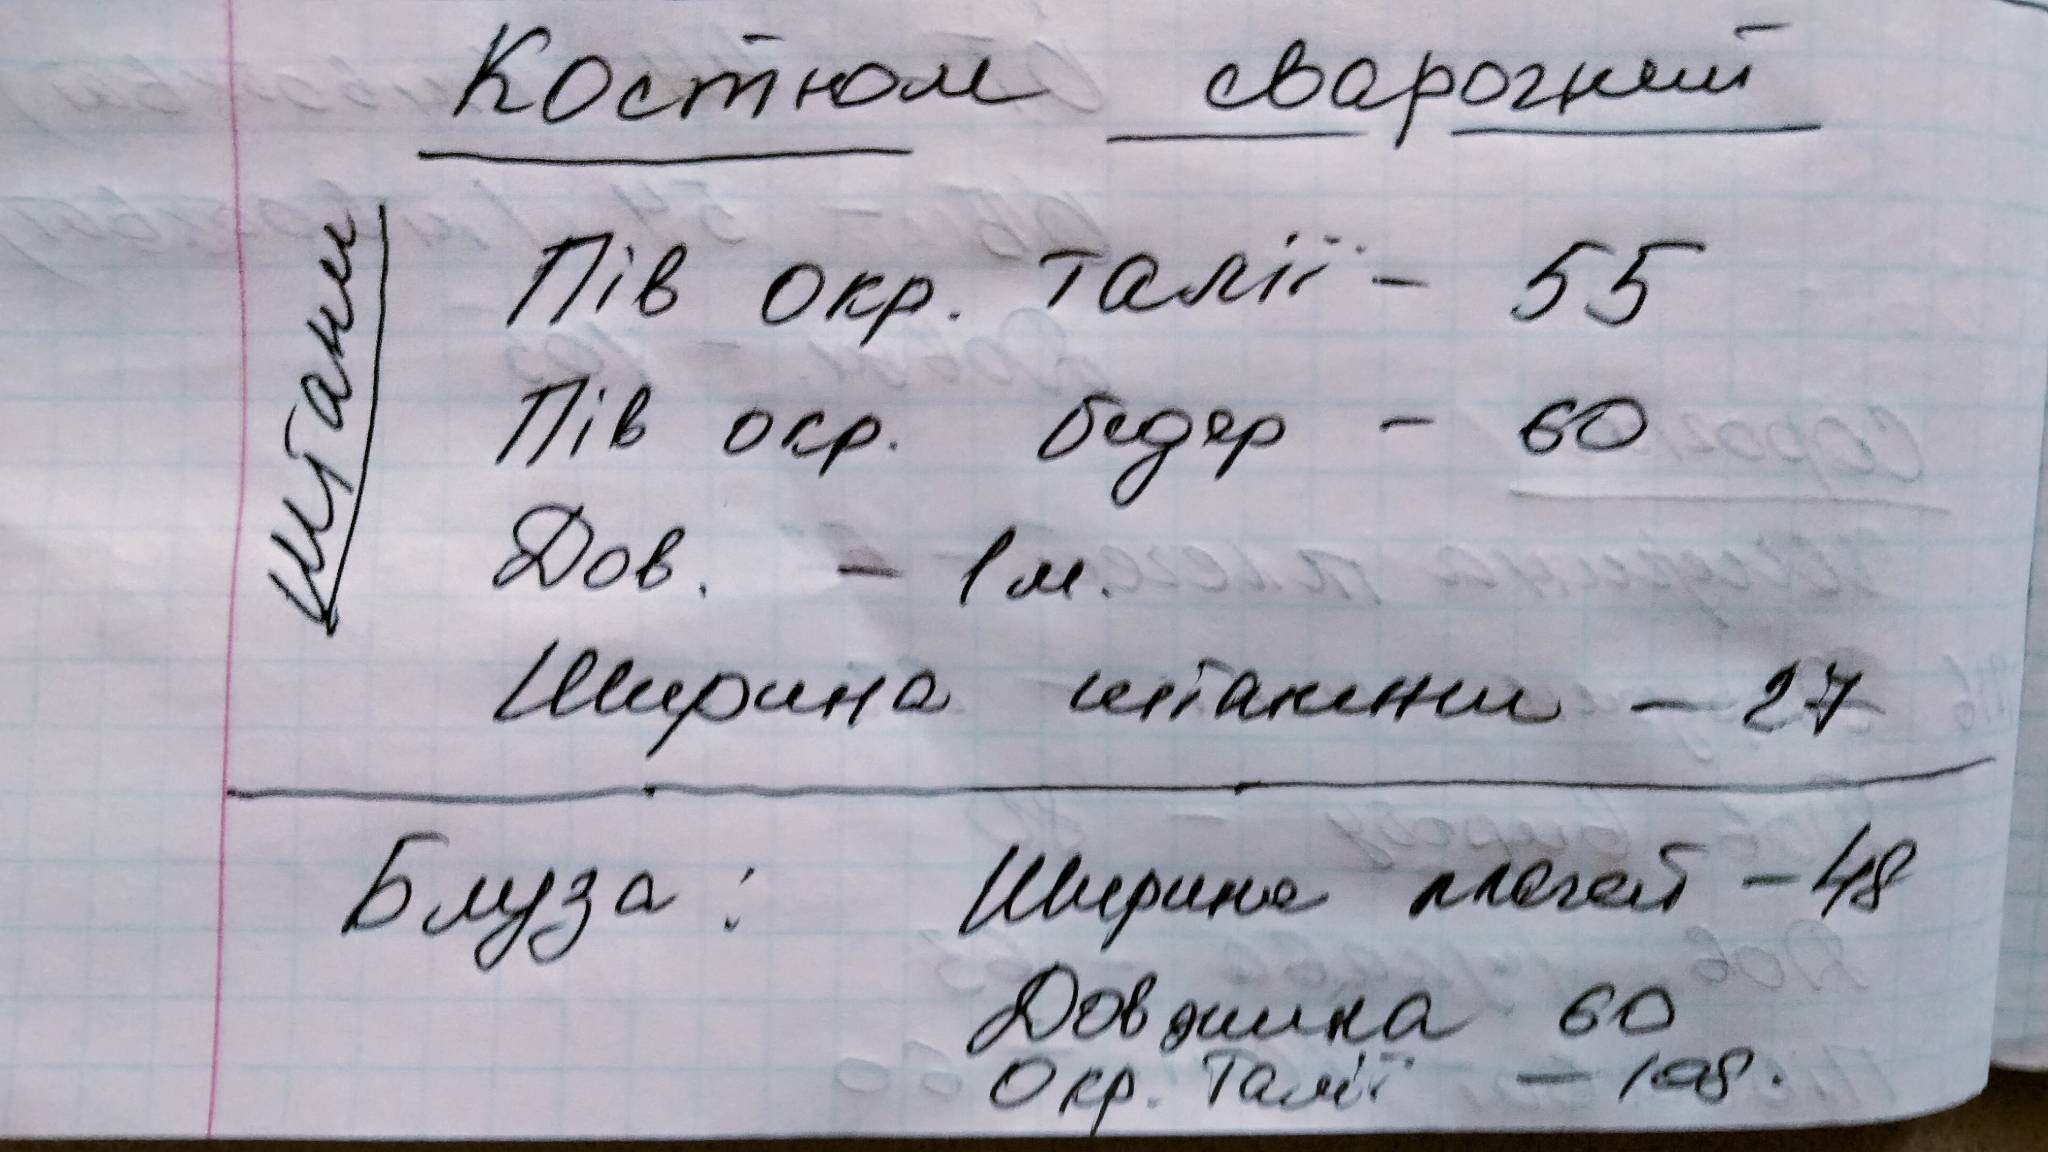 Костюм сварочний
Штани
Пів окр. талії - 55
Пів окр. бедер - 60
Дов. - 1 м.
Ширина штанини - 27
Блуза: Ширина плечей - 48
Довжина 60
Окр. Талії - 108.